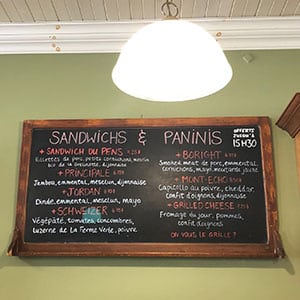 SANDWICHS & PANINIS
OFFERTS
JUSQU'À
15H30
+ SANDWICH DU PENS
Rillettes de porc, petits cornichons, mesclun
bio de la Grelinette, dijonnaise
+ PRINCIPALE
Jambon, emmental, mesclun, dijonnaise
+ JORDAN
Dinde, emmental, mesclun, mayo
+ SCHWEIZER
Végépâté, tomates, concombres,
luzerne de La Ferme Verte, poivre
+ BORIGHT
Smoked meat de porc, emmental,
cornichons, mayo, moutarde jaune
+ MONT-ECHO
Capicollo au poivre, cheddar,
confit d'oignons, dijonnaise
+ GRILLED CHEESE
Fromage du jour, pommes,
confit d'oignons
ON VOUS LE GRILLE ?